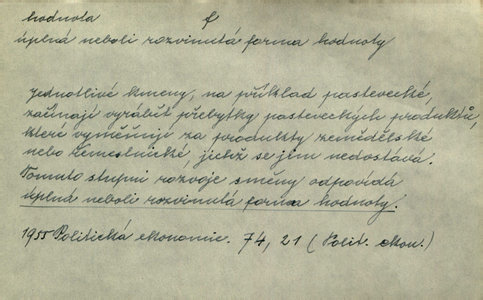 hodnota f
úplná neboli rozvinutá forma hodnoty
Jednotlivé kmeny, na příklad pastevecké,
začínají vyrábět přebytky pasteveckých produktů,
které vyměňují za produkty zemědělské
nebo řemeslnické, jichž se jim nedostává.
Tomuto stupni rozvoje směny odpovídá
úplná neboli rozvinutá forma hodnoty.
1955 Politická ekonomie. 74, 21 (Polit. ekon.)